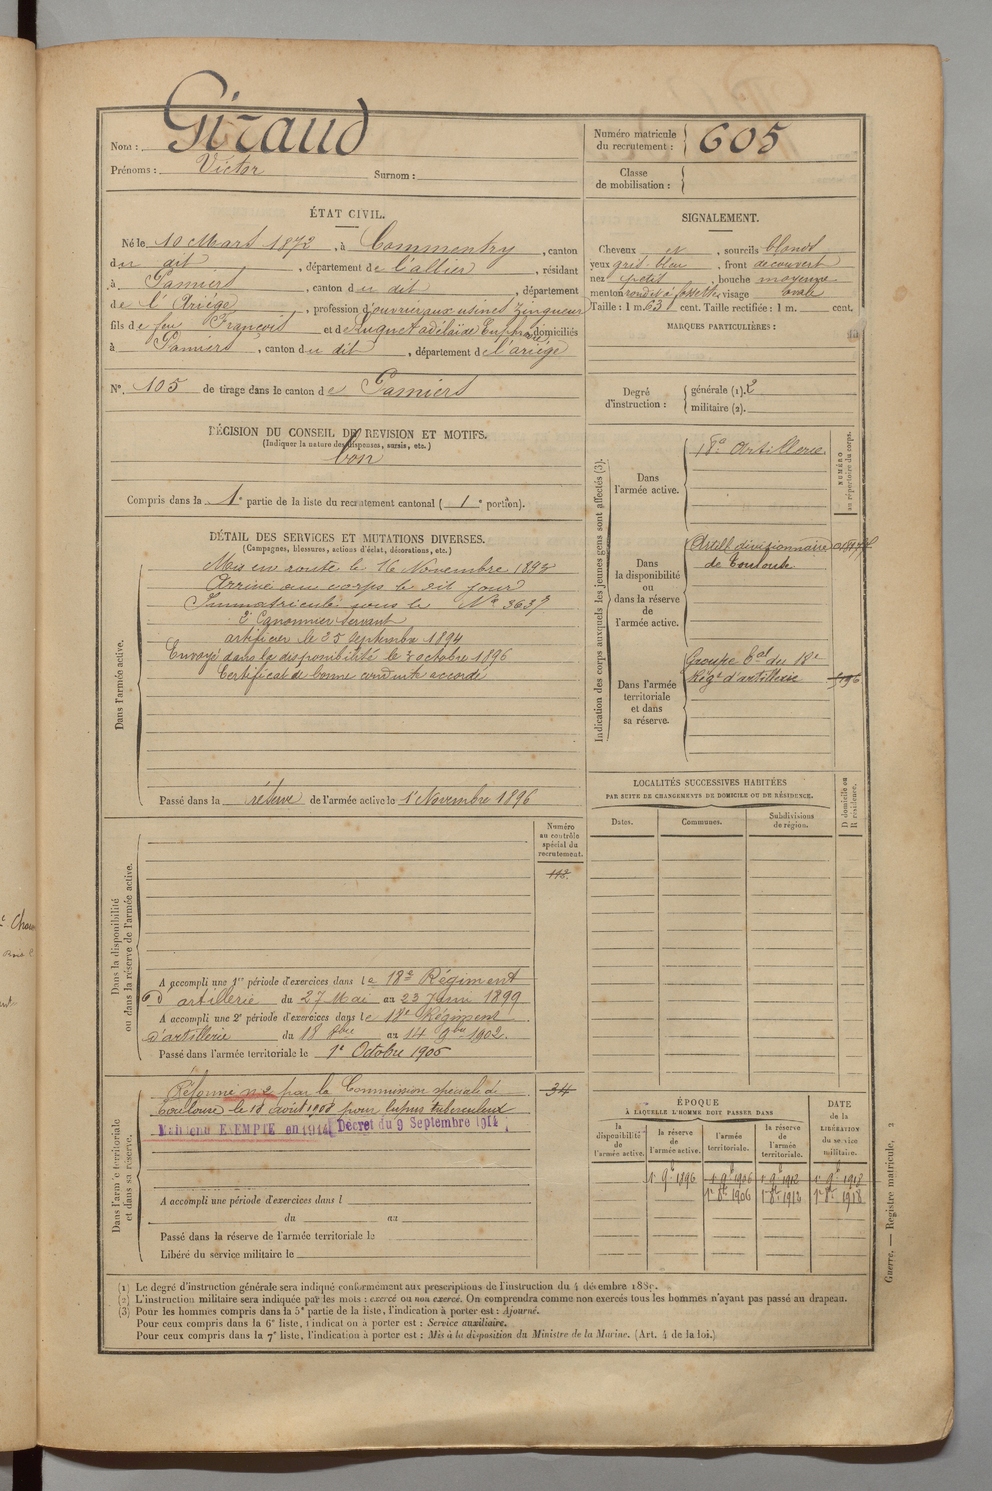 Nom : Giraud
Prénoms : Victor Surnom :
Numéro matricule du recrutement : 605
Classe de mobilisation :
ÉTAT CIVIL.
Né le 10 Mars 1872, à Commentry, canton
du dit, département de l'allier, résidant
à Pamiers, canton du dit, département
de l'Ariége, profession d'ouvrier aux usines Zingueur
fils de feu François et de Luquet adélaïde domiciliés
à Pamiers, canton du dit, département de l'ariége
N° 105 de tirage dans le canton de Pamiers
DÉCISION DU CONSEIL DE REVISION ET MOTIFS.
(Indiquer la nature des dispenses, sursis, etc.)
bon
Compris dans la 1e partie de la liste du recrutement cantonal ( 1e portion).
SIGNALEMENT.
Cheveux et, sourcils blonds
yeux gris bleu, front découvert
nez petit, bouche moyenne
menton rond et à fossette visage ovale
Taille : 1 m. 63 cent. Taille rectifiée : 1 m. cent.
MARQUES PARTICULIÈRES :
Degré d'instruction : générale (1). 2
militaire (2).
DÉTAIL DES SERVICES ET MUTATIONS DIVERSES.
(Campagnes, blessures, actions d'éclat, décorations, etc.)
Dans l'armée active.
Mis en route le 16 Novembre 1893
Arrivé au corps le dit jour
Immatriculé sous le N° 3637
2e Canonnier Servant
artificier le 25 Septembre 1894
Envoyé dans la disponibilité le 3 octobre 1896
Certificat de bonne conduite accordé
Passé dans la réserve de l'armée active le 1er Novembre 1896
Indication des corps auxquels les jeunes gens sont affectés (3).
NUMÉRO au répertoire du corps.
Dans l'armée active.
18e Artillerie
Dans la disponibilité ou dans la réserve de l'armée active.
Artill divisionnaire
de Toulouse
Dans l'armée territoriale et dans sa réserve.
Groupe tal du 18e
Régt d'artillerie
Dans la disponibilité ou dans la réserve de l'armée active.
Numéro au contrôle spécial du recrutement.
A accompli une 1re période d'exercices dans le 18e Régiment
d'artillerie du 27 Mai au 23 Juin 1899
A accompli une 2e période d'exercices dans le 18e Régiment
d'artillerie du 18 8bre au 14 9bre 1902.
Passé dans l'armée territoriale le 1er Octobre 1906
Dans l'armée territoriale et dans sa réserve.
34
Réformé n° 2 par la Commission spéciale de
Toulouse le 18 août 1908 pour lupus tuberculeux
Maintenu EXEMPTÉ en 1914 Décret du 9 Septembre 1914
A accompli une période d'exercices dans l
du au
Passé dans la réserve de l'armée territoriale le
Libéré du service militaire le
LOCALITÉS SUCCESSIVES HABITÉES
PAR SUITE DE CHANGEMENTS DE DOMICILE OU DE RÉSIDENCE.
D domicile ou R résidence.
Dates. Communes. Subdivisions de région.
ÉPOQUE
À LAQUELLE L'HOMME DOIT PASSER DANS
DATE de la LIBÉRATION du service militaire.
la disponibilité de l'armée active. la réserve de l'armée active. l'armée territoriale. la réserve de l'armée territoriale.
1er 9bre 1896 1er 9bre 1906 1er 9bre 1912 1er 9bre 1918
1er 8bre 1906 1er 8bre 1912 1er 8bre 1918
Guerre. — Registre matricule. 2
(1) Le degré d'instruction générale sera indiqué conformément aux prescriptions de l'instruction du 4 décembre 1889.
(2) L'instruction militaire sera indiquée par les mots : exercé ou non exercé. On comprendra comme non exercés tous les hommes n'ayant pas passé au drapeau.
(3) Pour les hommes compris dans la 5e partie de la liste, l'indication à porter est : Ajourné.
Pour ceux compris dans la 6e liste, l'indication à porter est : Service auxiliaire.
Pour ceux compris dans la 7e liste, l'indication à porter est : Mis à la disposition du Ministre de la Marine. (Art. 4 de la loi.)